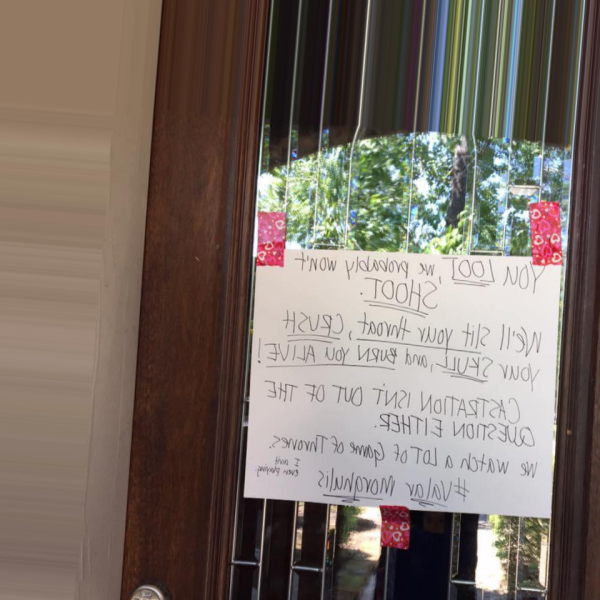 YOU LOOT, we probably won't
SHOOT.
We'll slit your throat, CRUSH
your SKULL, and BURN YOU ALIVE!
CASTRATION ISN'T OUT OF THE
QUESTION EITHER.
We watch a LOT of Game of Thrones.
I ain't
even playing.
#Valar Morghulis